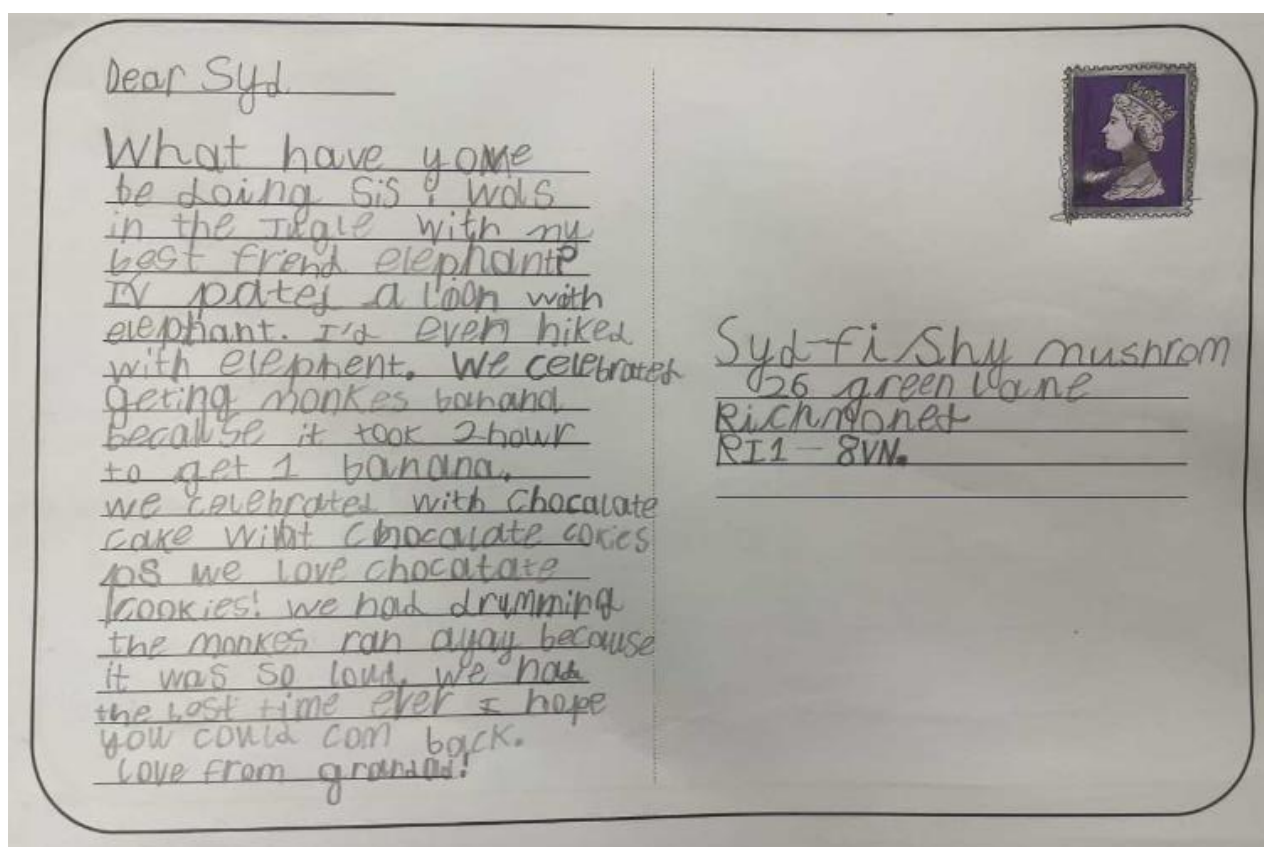 Dear Syd
What have yome
be doing sis i was
in the Jugle with my
best frend elephant?
IV pated a lion with
elephant. I'd even hiked
with elephent. We celebrated
geting monkes banana
becaUse it took 2 hour
to get 1 banana.
we celebrated with Chocalate
cake wiht Chocalate cokies
as we love chocatate
cookies! we had drumming
the monkes ran ayay because
it was so loud. we had
the best time ever I hope
you could com back.
Love from grandad!
Syd-fi Shy mushrom
26 green lane
Richmoned
RI1 - 8VN.